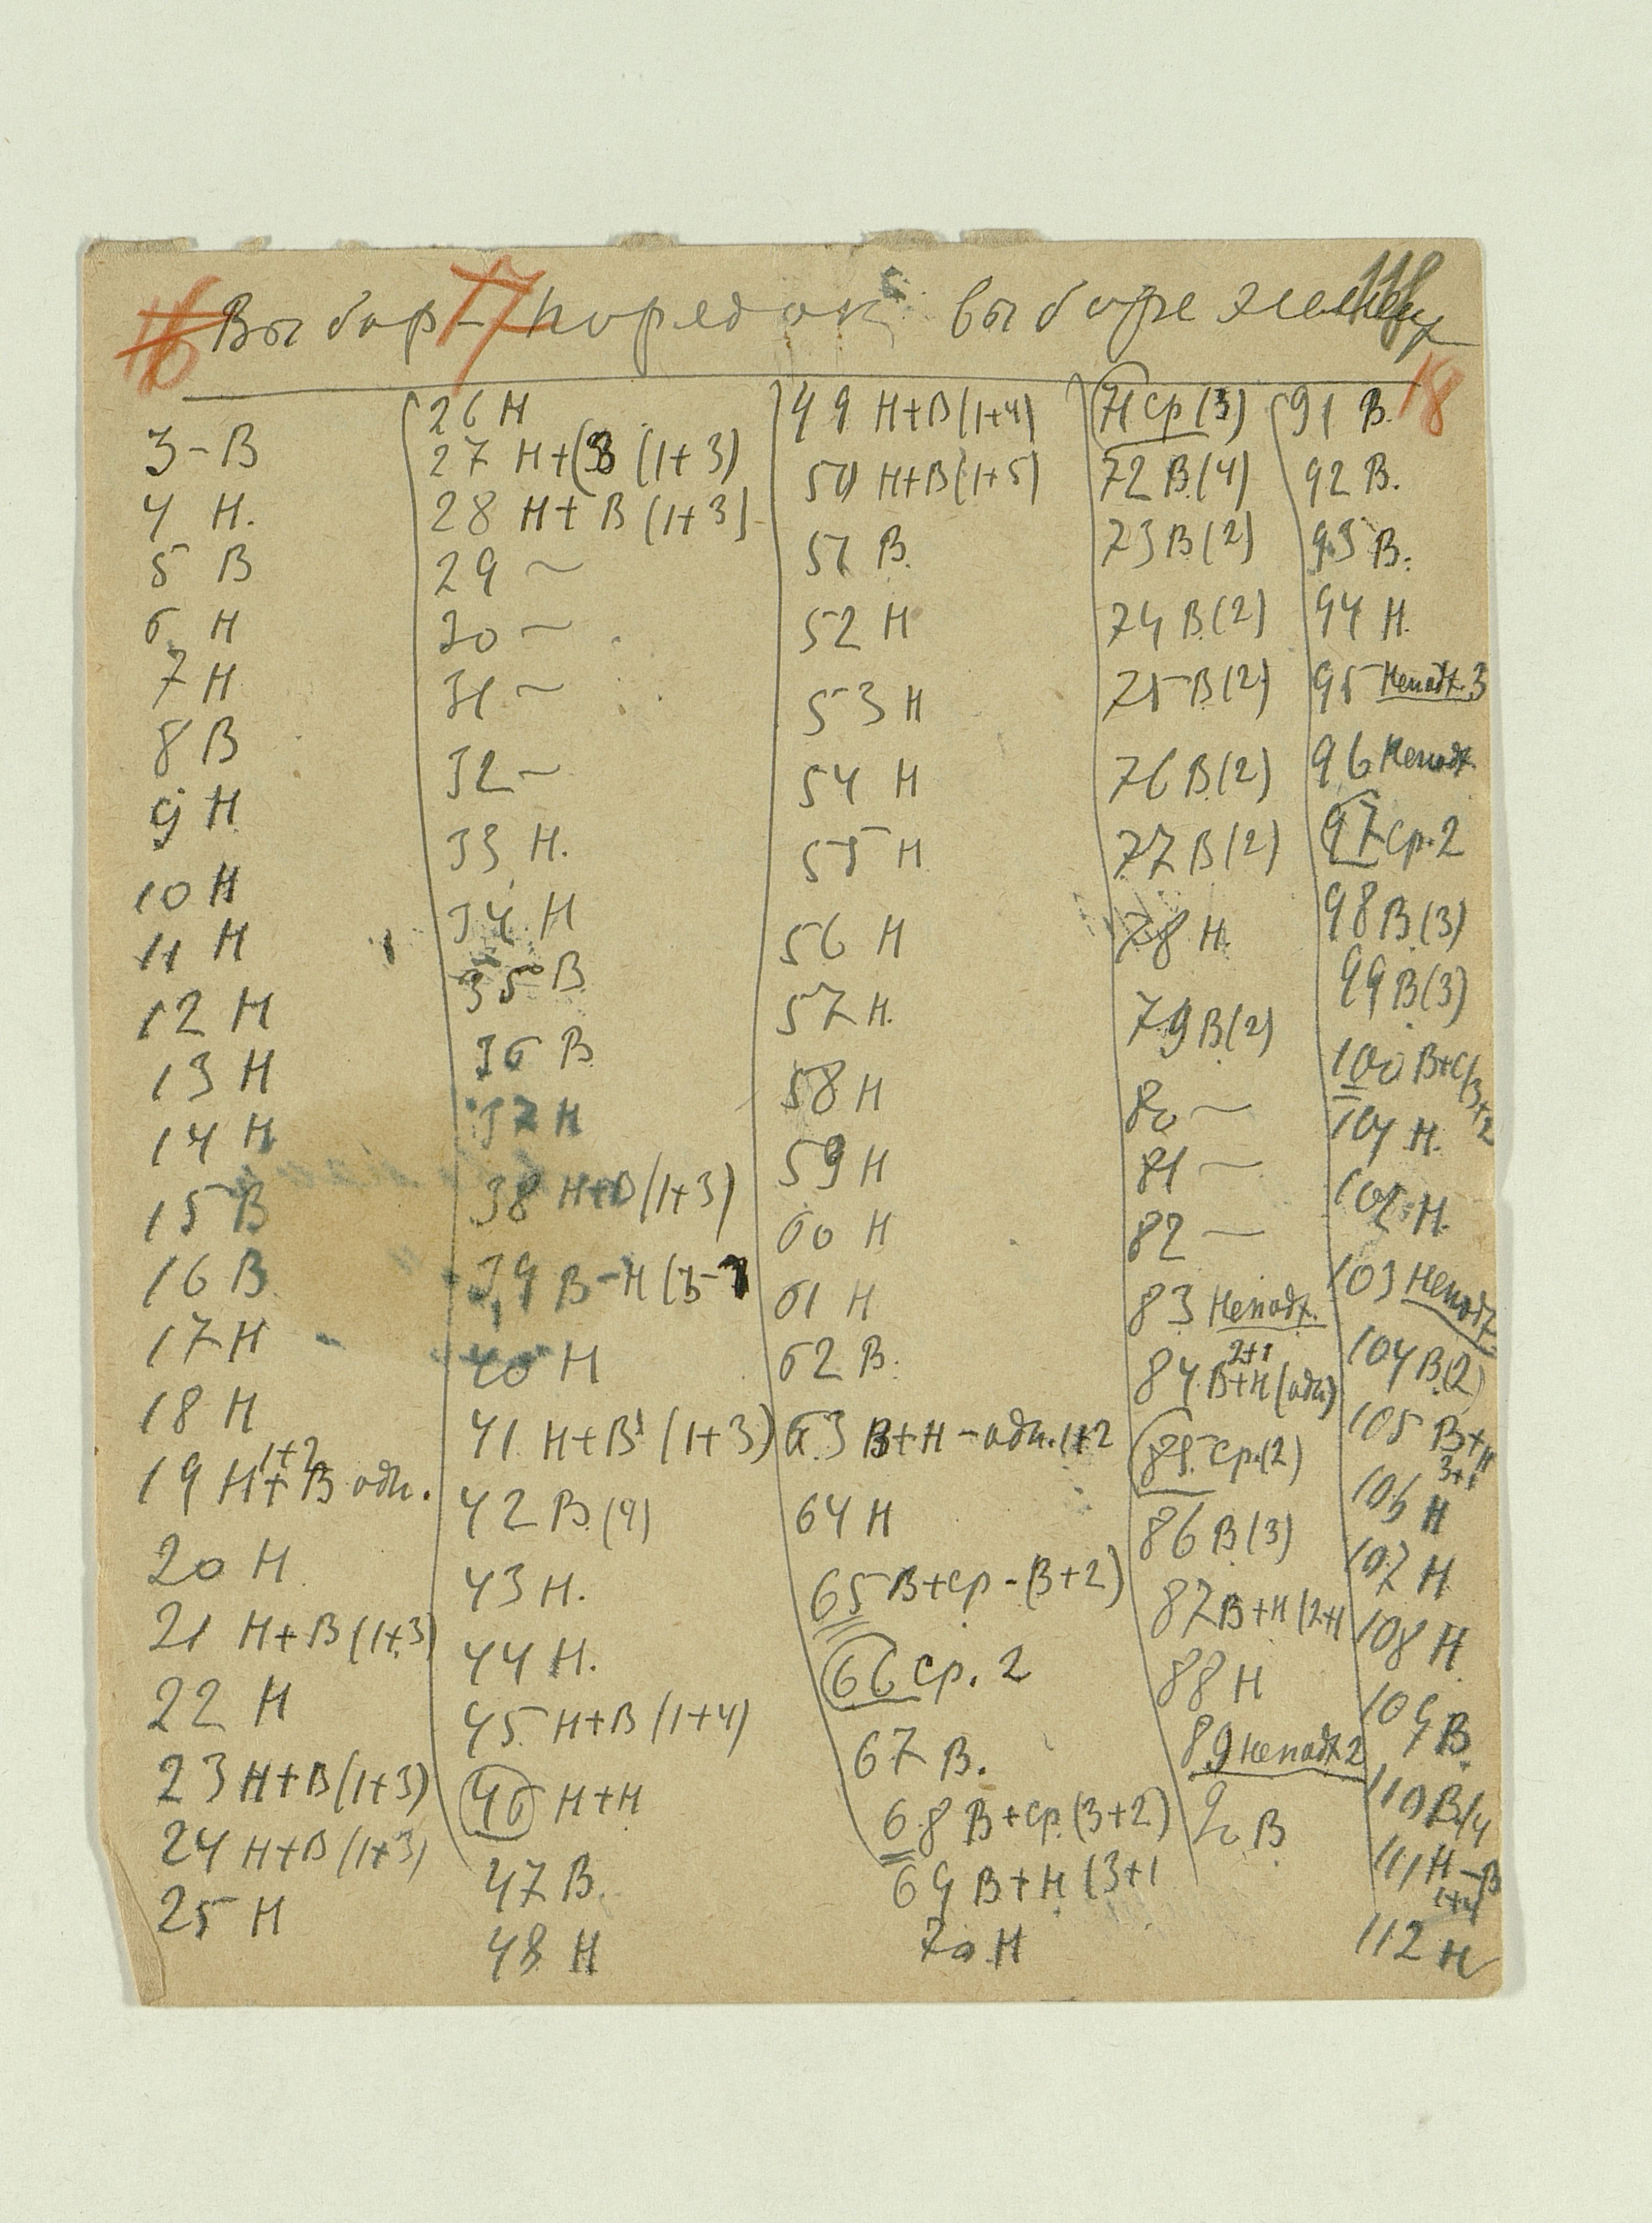 16 Выбор – 17 порядок выборе
18
3 – В
4 Н.
5 В
6 Н
7 Н
8 В
9 Н
10 Н
11 Н
12 Н
13 Н
14 Н
15 В
16 В
17 Н
18 Н
1+2
19 Н+В одн.
20 Н
21 Н+В (1+3)
22 Н
23 Н+В (1+3)
24 Н+В (1+3)
25 Н
26 Н
27 Н+(В (1+3)
28 Н+В (1+3)
29 ~
30 ~
31 ~
32 ~
33 Н.
34 Н
35 В
36 В
37 Н
38 Н+В (1+3)
39 В–Н (3–1
40 Н
41 Н+В (1+3)
42 В (4)
43 Н.
44 Н.
45 Н+В (1+4)
46 Н+Н
47 В.
48 Н
49 Н+В (1+4)
50 Н+В (1+5)
51 В.
52 Н
53 Н
54 Н
55 Н
56 Н
57 Н.
58 Н
59 Н
60 Н
61 Н
62 В.
63 В+Н – одн. 1+2
64 Н
65 В+ср – (3+2)
66 ср. 2
67 В.
68 В+ср. (3+2)
69 В+Н (3+1
70 Н
71 ср (3)
72 В (4)
73 В (2)
74 В (2)
75 В (2)
76 В (2)
77 В (2)
78 Н.
79 В (2)
80 ~
81 ~
82 ~
83 Неподх.
2+1
84 В+Н (одн)
85 ср. (2)
86 В (3)
87 В+Н (2+1
88 Н
89 неподх 2
90 В
91 В.
92 В.
93 В.
94 Н.
95 Неподх. 3
96 Неподх.
97 ср. 2
98 В (3)
99 В (3)
100 В+С/3+2
101 Н.
102 Н.
103 Неподх
104 В (2)
105 В+Н
3+1
106 Н
107 Н
108 Н
109 В.
110 В/4
111 Н–В
1+4
112 Н